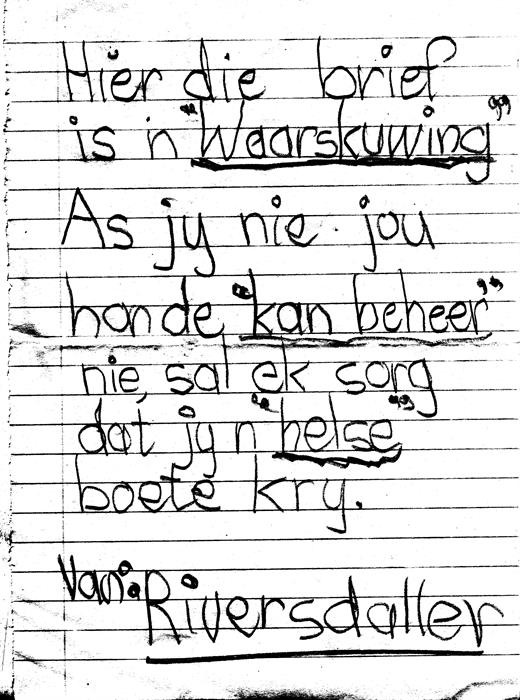 Hier die brief
is 'n "Waarskuwing"
As jy nie jou
honde "kan beheer"
nie, sal ek sorg
dat jy n "helse"
boete kry.
Van: Riversdaller